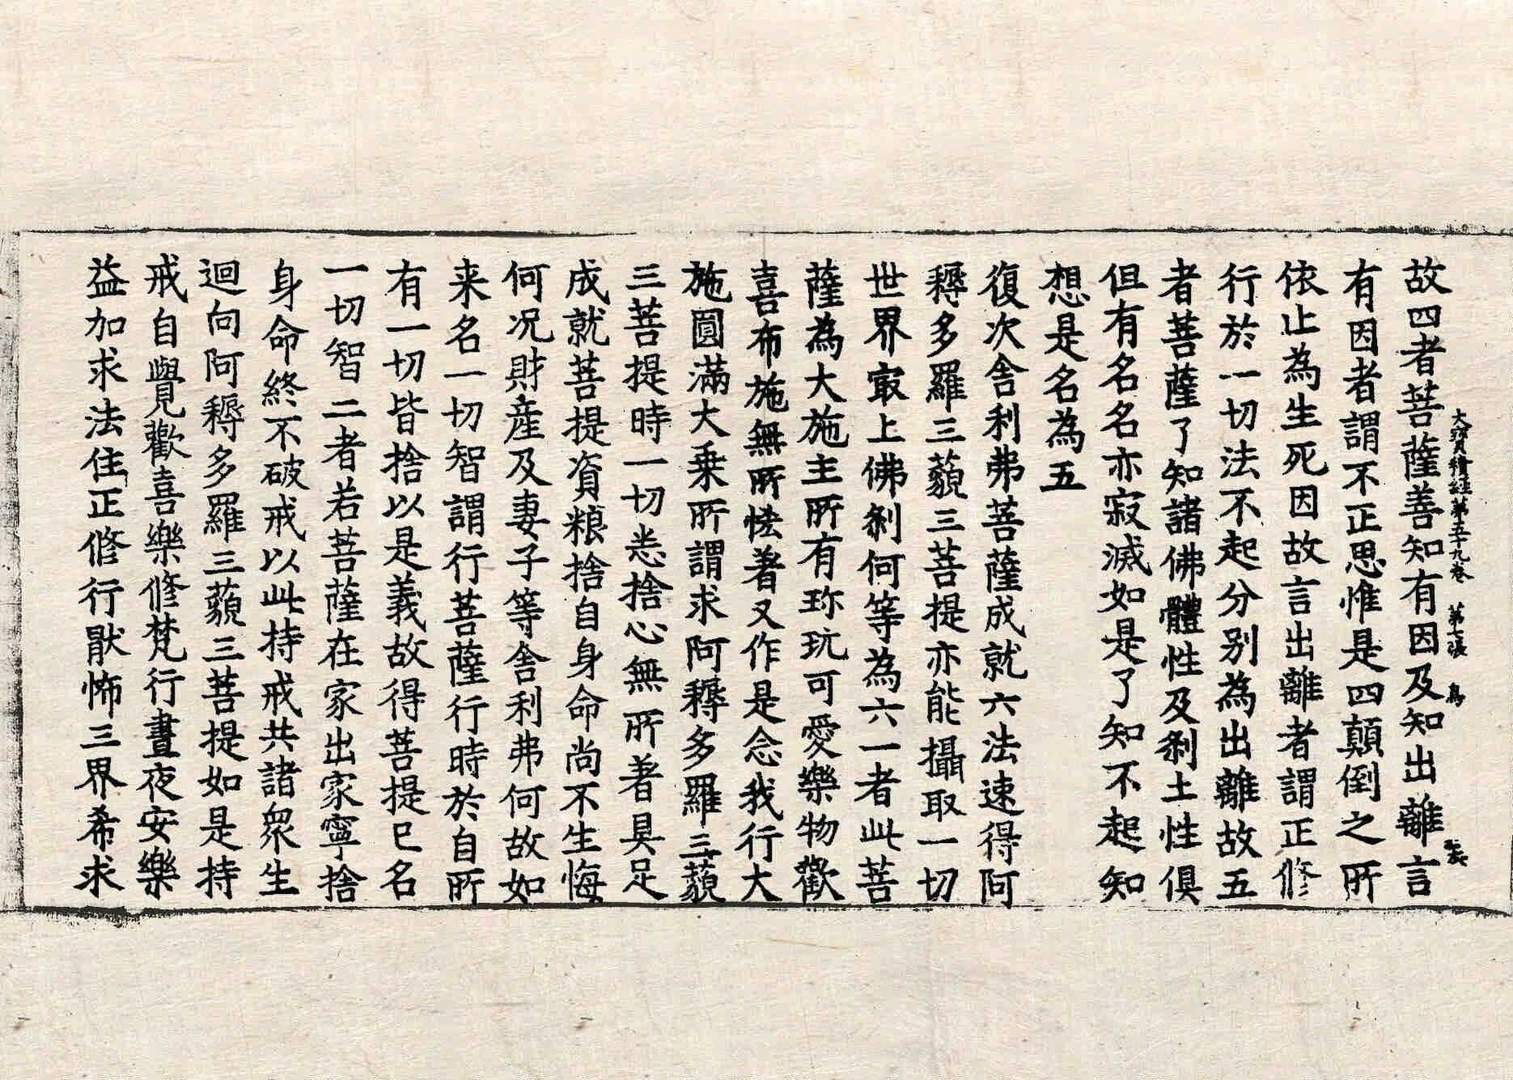 大寶積經第五十九卷 第七張 鳥
故四者菩薩善知有因及知出離言
有因者謂不正思惟是四顛倒之所
依止為生死因故言出離者謂正修
行於一切法不起分别為出離故五
者菩薩了知諸佛體性及刹土性俱
但有名名亦寂滅如是了知不起知
想是名為五
復次舍利弗菩薩成就六法速得阿
耨多羅三藐三菩提亦能攝取一切
世界㝡上佛刹何等為六一者此菩
薩為大施主所有珎玩可愛樂物歡
喜布施無所恡著又作是念我行大
施圓滿大乗所謂求阿耨多羅三藐
三菩提時一切悉捨心無所著具足
成就菩提資粮捨自身命尚不生悔
何况財産及妻子等舍利弗何故如
来名一切智謂行菩薩行時於自所
有一切皆捨以是義故得菩提已名
一切智二者若菩薩在家出家寧捨
身命終不破戒以此持戒共諸衆生
迴向阿耨多羅三藐三菩提如是持
戒自覺歡喜樂修梵行晝夜安樂
益加求法住正修行猒怖三界希求